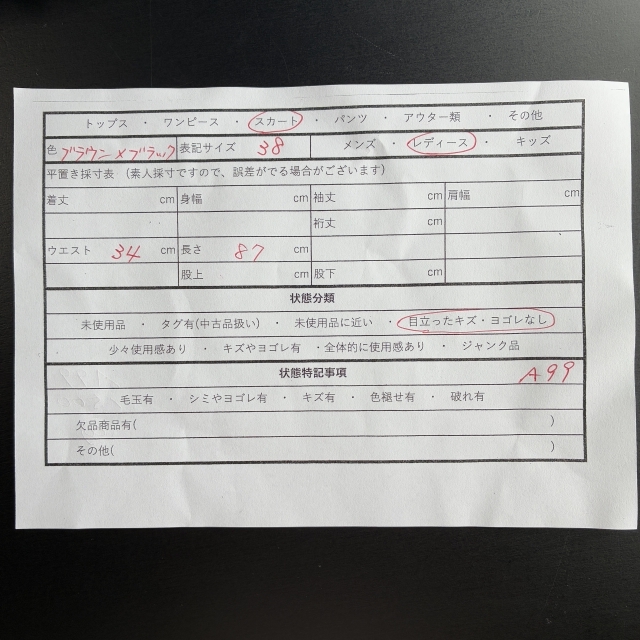 トップス ・ ワンピース ・ スカート ・ パンツ ・ アウター類 ・ その他
色 ブラウン×ブラック 表記サイズ 38 メンズ ・ レディース ・ キッズ
平置き採寸表 (素人採寸ですので、誤差がでる場合がございます)
着丈 cm 身幅 cm 袖丈 cm 肩幅 cm
裄丈 cm
ウエスト 34 cm 長さ 87 cm
股上 cm 股下 cm
状態分類
未使用品 ・ タグ有(中古品扱い) ・ 未使用品に近い ・ 目立ったキズ・ヨゴレなし
少々使用感あり ・ キズやヨゴレ有 ・全体的に使用感あり ・ ジャンク品
状態特記事項 A99
毛玉有 ・ シミやヨゴレ有 ・ キズ有 ・ 色褪せ有 ・ 破れ有
欠品商品有( )
その他( )